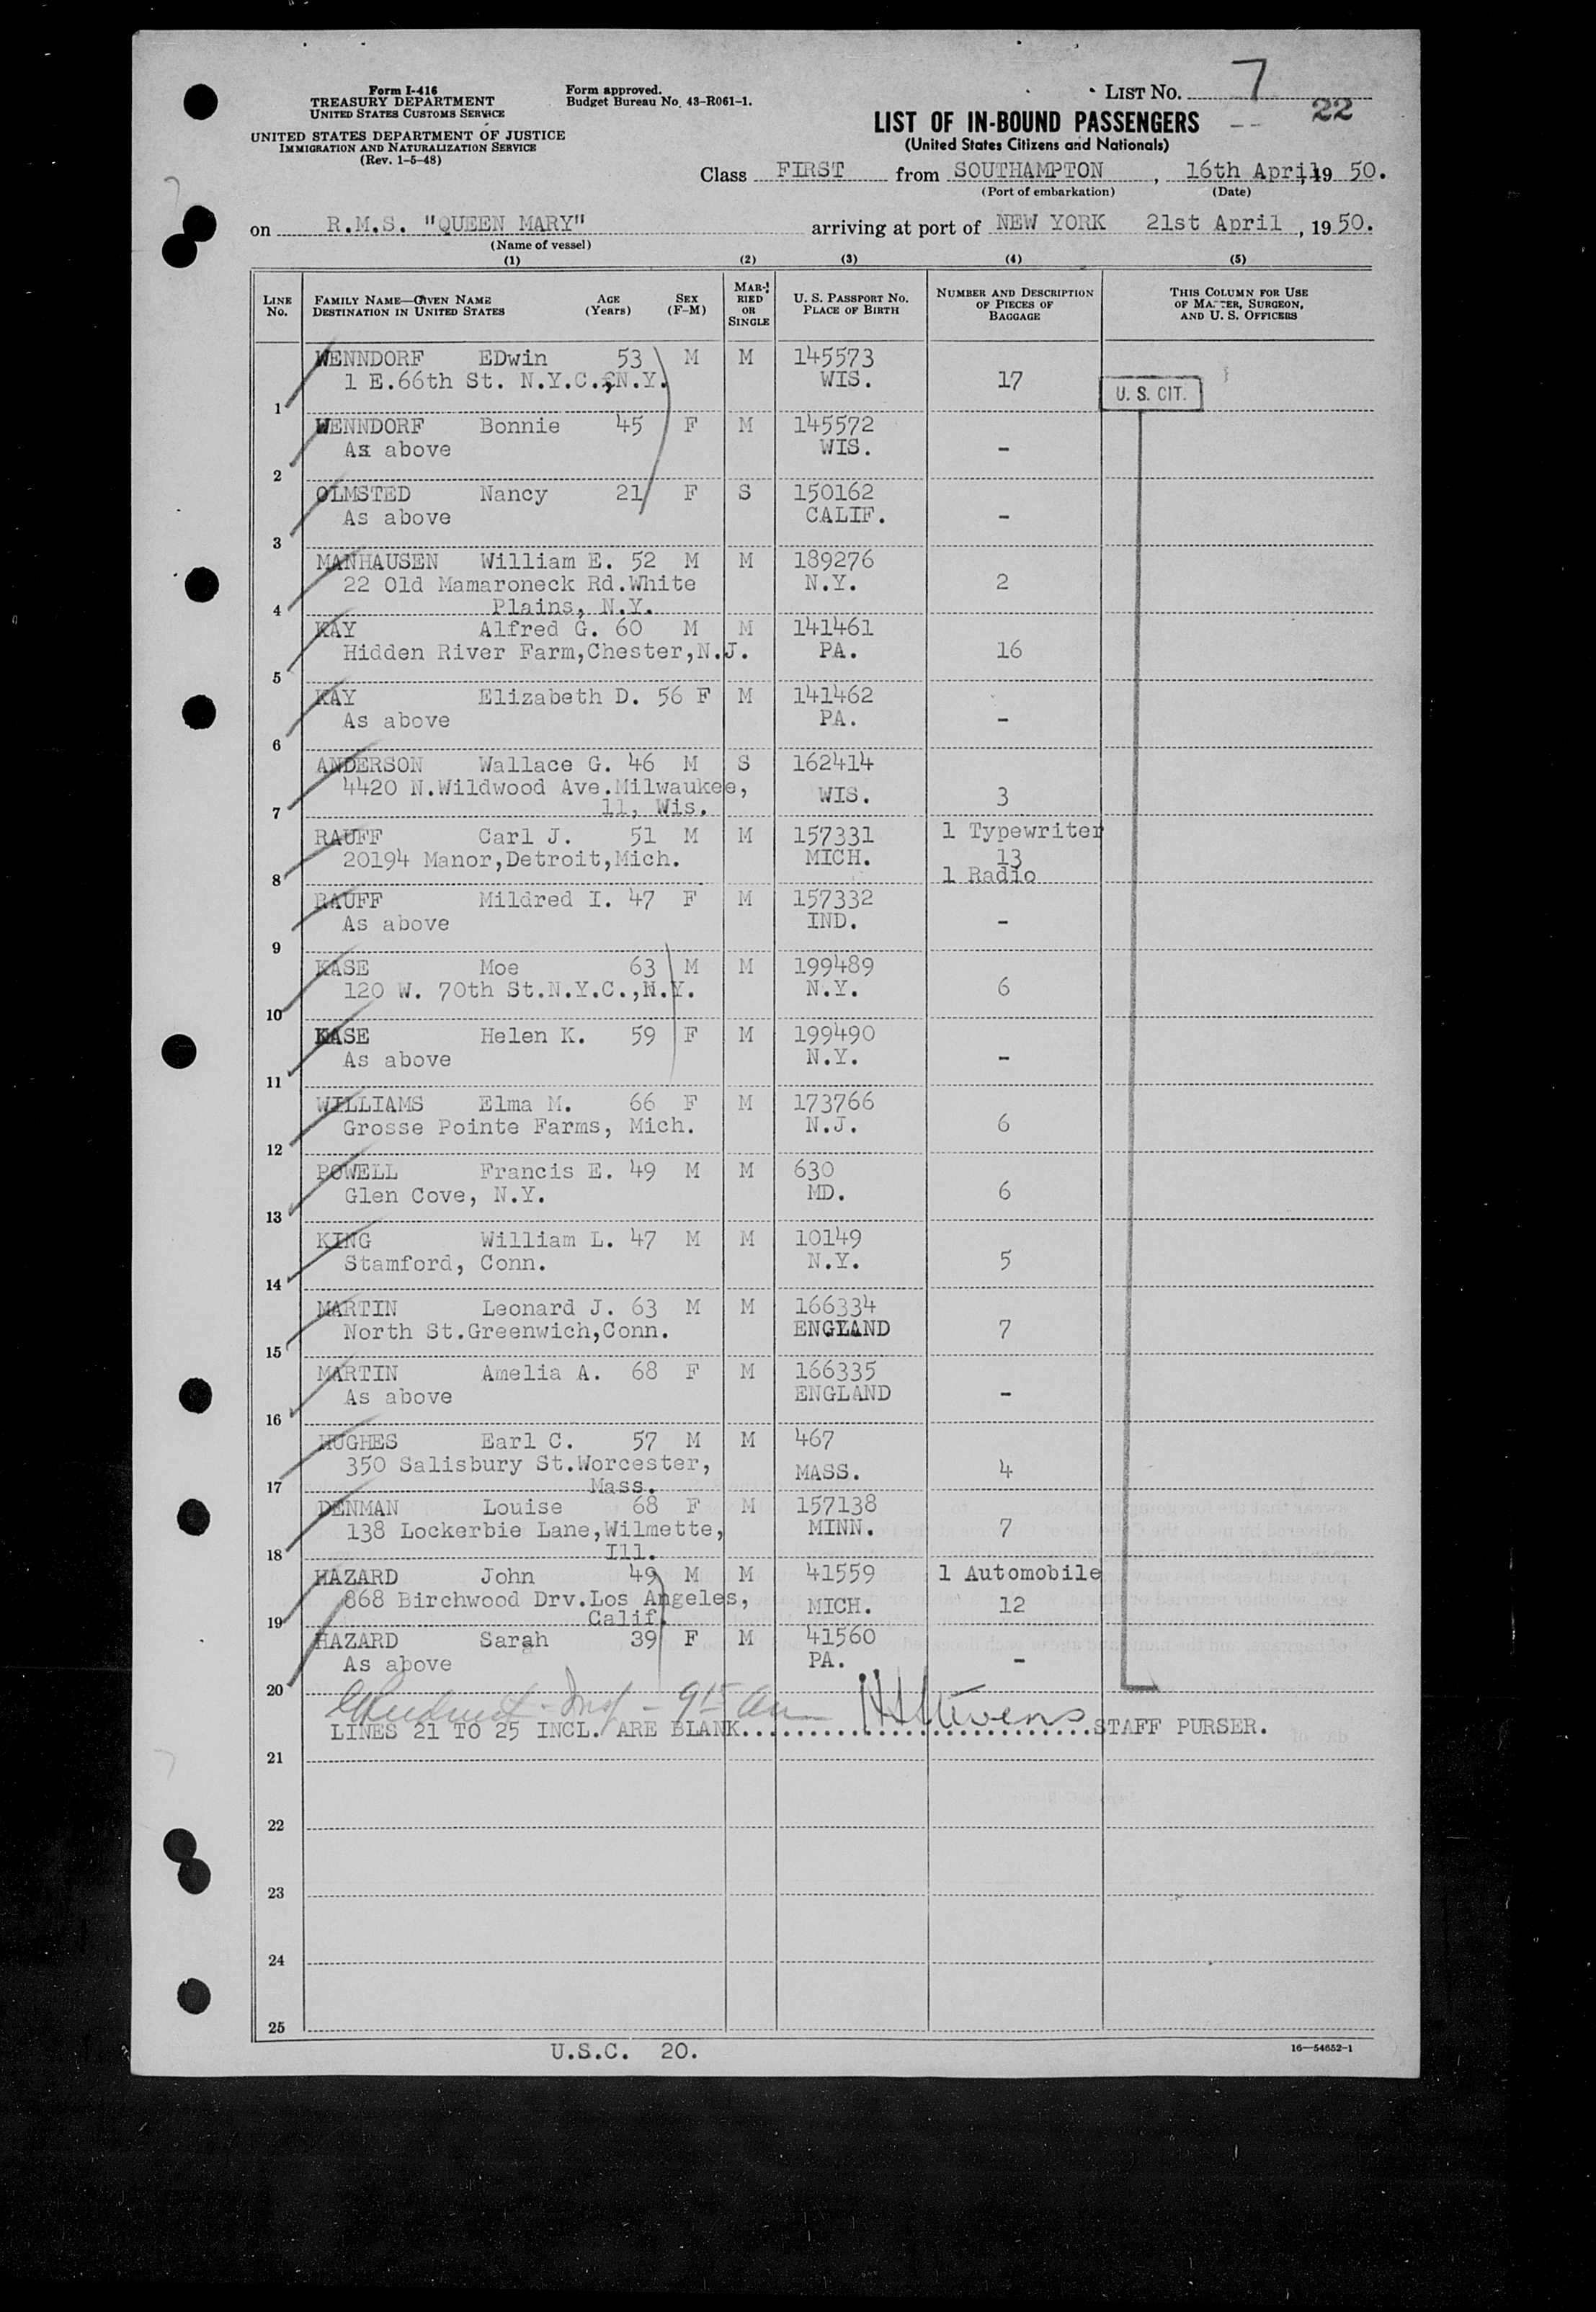 Form I-416
TREASURY DEPARTMENT
UNITED STATES CUSTOMS SERVICE
UNITED STATES DEPARTMENT OF JUSTICE
IMMIGRATION AND NATURALIZATION SERVICE
(Rev. 1-5-48)
Form approved.
Budget Bureau No. 43-R061-1.
LIST NO. 7
22
LIST OF IN-BOUND PASSENGERS
(United States Citizens and Nationals)
Class FIRST from SOUTHAMPTON, 16th April, 1950.
(Port of embarkation) (Date)
on R.M.S. "QUEEN MARY" arriving at port of NEW YORK 21st April, 1950.
(Name of vessel)
(1) (2) (3) (4) (5)
LINE NO. FAMILY NAME—GIVEN NAME DESTINATION IN UNITED STATES AGE (Years) SEX (F-M) MARRIED OR SINGLE U. S. PASSPORT NO. PLACE OF BIRTH NUMBER AND DESCRIPTION OF PIECES OF BAGGAGE THIS COLUMN FOR USE OF MASTER, SURGEON, AND U. S. OFFICERS
WENNDORF EDwin 53 M M 145573
1 E.66th St. N.Y.C.,N.Y. WIS. 17 U. S. CIT.
1
WENNDORF Bonnie 45 F M 145572
As above WIS. -
2
OLMSTED Nancy 21 F S 150162
As above CALIF. -
3
MANHAUSEN William E. 52 M M 189276
22 Old Mamaroneck Rd.White N.Y. 2
4 Plains, N.Y.
KAY Alfred G. 60 M M 141461
Hidden River Farm,Chester,N.J. PA. 16
5
KAY Elizabeth D. 56 F M 141462
As above PA. -
6
ANDERSON Wallace G. 46 M S 162414
4420 N.Wildwood Ave.Milwaukee, WIS. 3
7 11, Wis.
RAUFF Carl J. 51 M M 157331 1 Typewriter
20194 Manor,Detroit,Mich. MICH. 13
8 1 Radio
RAUFF Mildred I. 47 F M 157332
As above IND. -
9
KASE Moe 63 M M 199489
120 W. 70th St.N.Y.C.,N.Y. N.Y. 6
10
KASE Helen K. 59 F M 199490
As above N.Y. -
11
WILLIAMS Elma M. 66 F M 173766
Grosse Pointe Farms, Mich. N.J. 6
12
POWELL Francis E. 49 M M 630
Glen Cove, N.Y. MD. 6
13
KING William L. 47 M M 10149
Stamford, Conn. N.Y. 5
14
MARTIN Leonard J. 63 M M 166334
North St.Greenwich,Conn. ENGLAND 7
15
MARTIN Amelia A. 68 F M 166335
As above ENGLAND -
16
HUGHES Earl C. 57 M M 467
350 Salisbury St.Worcester, MASS. 4
17 Mass.
DENMAN Louise 68 F M 157138
138 Lockerbie Lane,Wilmette, MINN. 7
18 Ill.
HAZARD John 49 M M 41559 1 Automobile
868 Birchwood Drv.Los Angeles, MICH. 12
19 Calif.
HAZARD Sarah 39 F M 41560
As above PA. -
20
- Insp - 9 15 am H Stevens
LINES 21 TO 25 INCL. ARE BLANK..............................STAFF PURSER.
21
22
23
24
25
U.S.C. 20.
16—54652-1